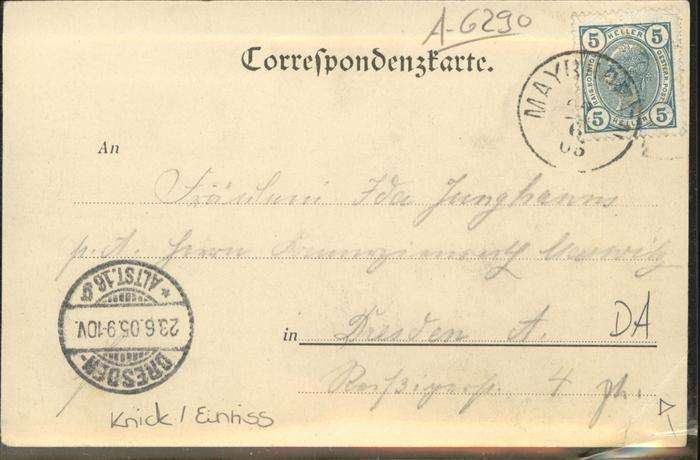 A-6290
Correspondenzkarte.
5 HELLER 5
5 HELLER 5
MAYB
6
05
An
Fräulein Ida Junghanns
p. A. Herrn Kommerzienrath
* ALTST. 16 g
23.6.05.9-10V.
DRESDEN-
in Dresden A.
DA
4 ph.
Knick / Einriss